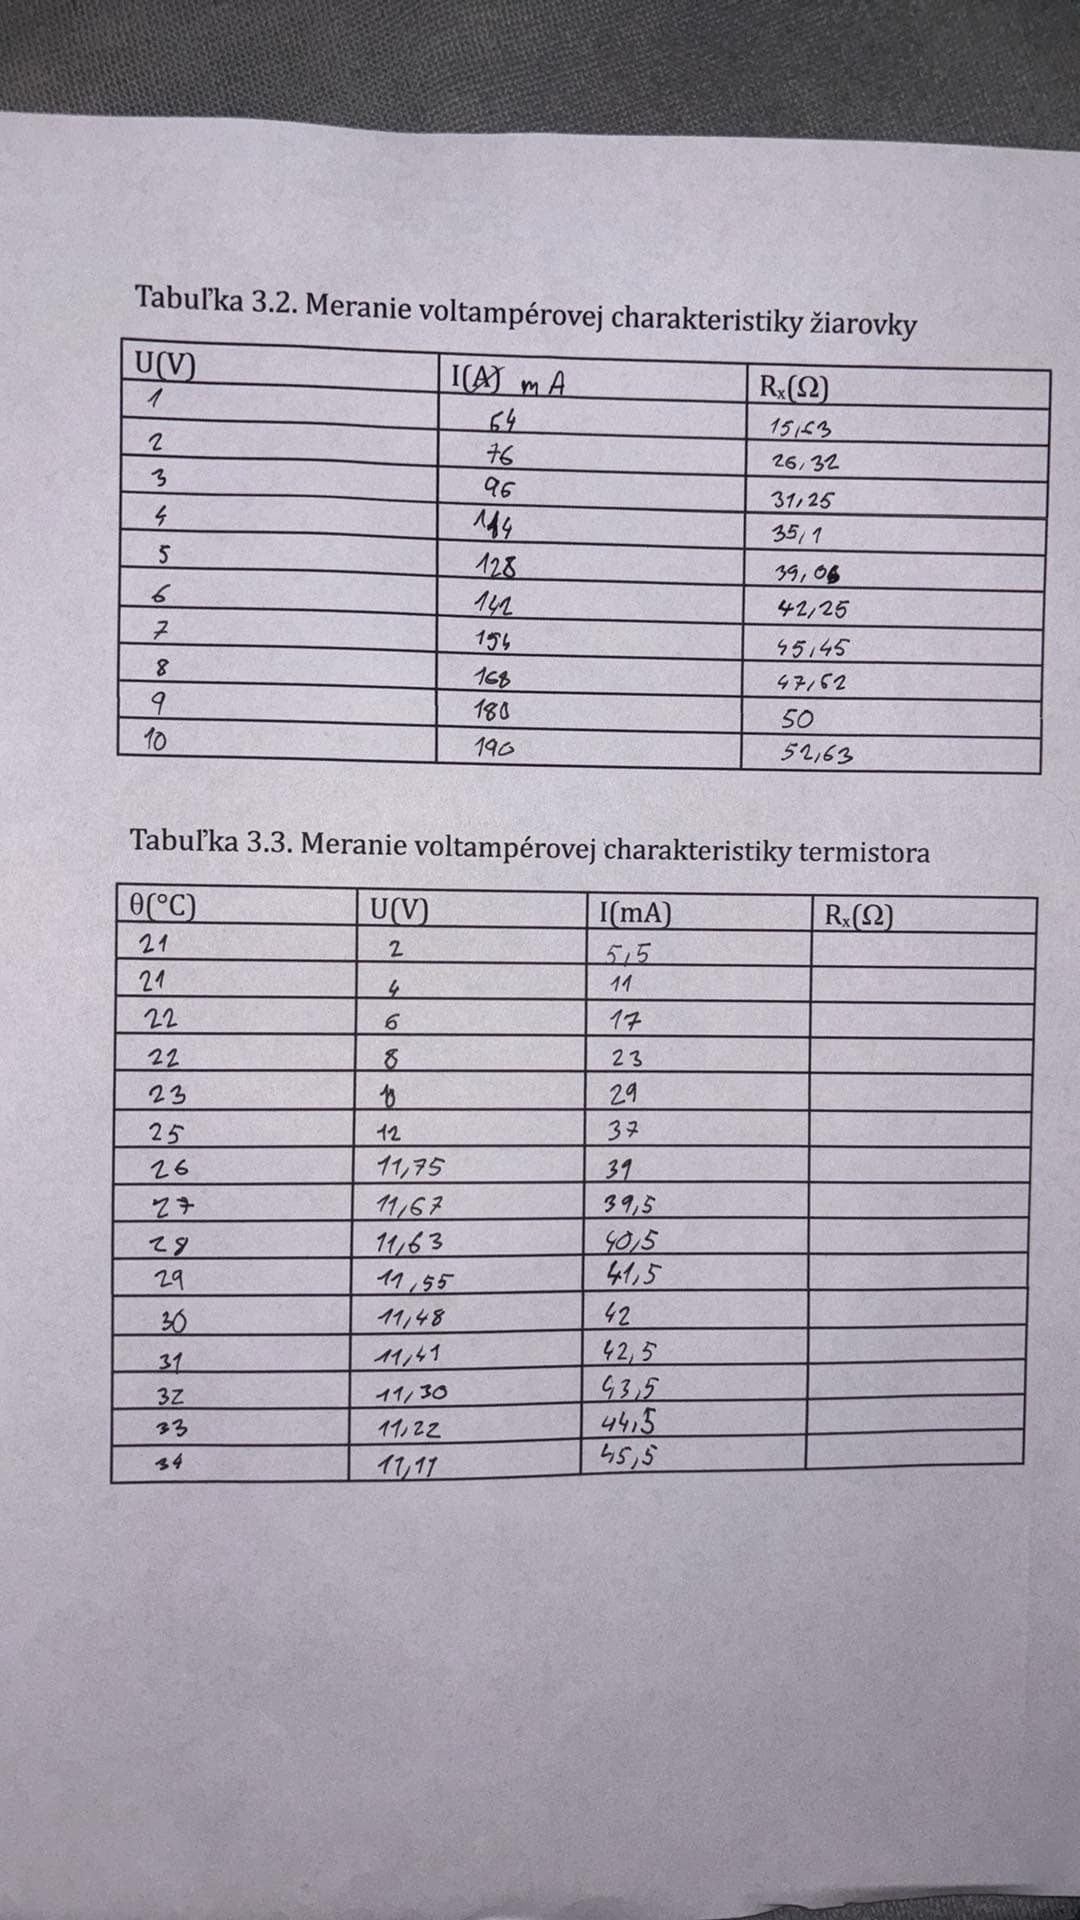 Tabuľka 3.2. Meranie voltampérovej charakteristiky žiarovky
U(V) I(A) mA Rₓ(Ω)
1 64 15,63
2 76 26,32
3 96 31,25
4 114 35,1
5 128 39,06
6 142 42,25
7 154 45,45
8 168 47,62
9 180 50
10 190 52,63
Tabuľka 3.3. Meranie voltampérovej charakteristiky termistora
θ(°C) U(V) I(mA) Rₓ(Ω)
21 2 5,5
21 4 11
22 6 17
22 8 23
23 10 29
25 12 37
26 11,75 39
27 11,67 39,5
28 11,63 40,5
29 11,55 41,5
30 11,48 42
31 11,41 42,5
32 11,30 43,5
33 11,22 44,5
34 11,11 45,5